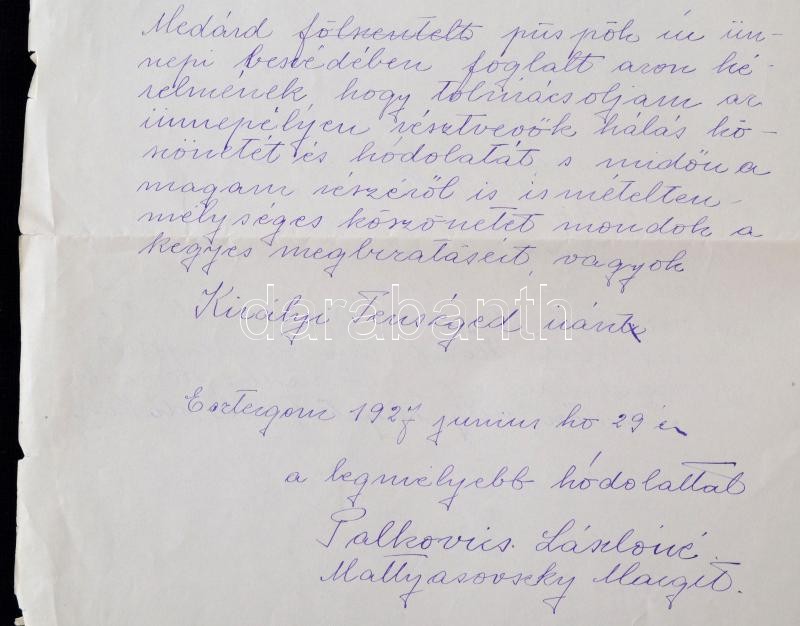 Medárd fölszentelt püspök úr ün-
nepi beszédében foglalt azon ké-
relmének, hogy tolmácsoljam az
ünnepélyen résztvevők hálás kö-
szönetét és hódolatát s midőn a
magam részéről is ismételten
mélységes köszönetet mondok a
kegyes megbizatásért, vagyok
Királyi Fenséged iránt
darabanth
Esztergom 1927 junius hó 29 én
a legmélyebb hódolattal
Palkovics Lászlóné
Mattyasovszky Margit.